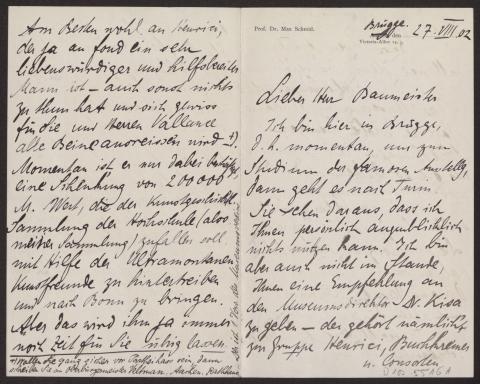 Prof. Dr. Max Schmid.
Brügge. den 27. VIII 02
Victoria-Allee
Lieber Herr Baumeister
Ich bin hier in Brügge,
d. h. momentan, um zum
Studium der famosen Ausstellg,
dann geht es nach Turin
Sie sehen daraus, dass ich
Ihnen persönlich augenblicklich
nichts nützen kann. Ich bin
aber auch nicht im Stande,
Ihnen eine Empfehlung an
den Museumsdirektor Dr. Kisa
zu geben – der gehört nämlich
zur Gruppe Henrici, Buchkremer
u. Consorten
Am Besten wohl an Henrici,
der ja au fond ein sehr
liebenswürdiger und hilfsbereiter
Mann ist – auch sonst nichts
zu thun hat und sich gewiss
für Sie und Herren Vallance
alle Beine ausreissen wird +).
Momentan ist er nur dabei
eine Schenkung von 200000
M. Wert, die der Kunstgeschichtl.
Sammlung der Hochschule (also
meiner Sammlung) zufallen soll,
mit Hilfe der Ultramontanen
Kunstfreunde zu hintertreiben
und nach Bonn zu bringen.
Aber das wird ihm ja immer
noch Zeit für Sie übrig lassen.
+) Wollen Sie ganz sicher vor sein, dann
schreiben Sie an Oberbürgermeister Veltman. Aachen. Rathhaus